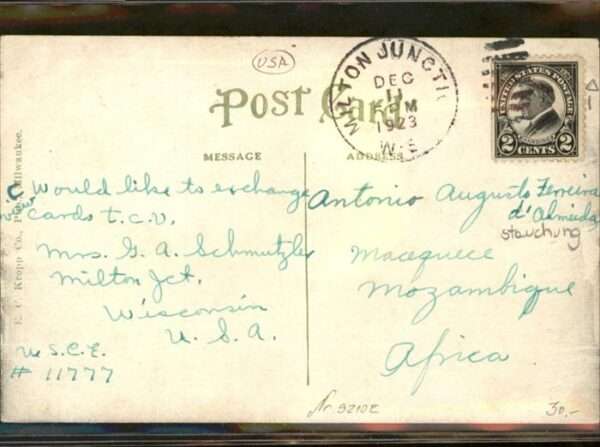 USA
MILTON JUNCTI
DEC
11
PM
1923
WIS
UNITED STATES POSTAGE
2 2
CENTS
Post Card
MESSAGE
ADDRESS
E. C. Kropp Co., Milwaukee.
Would like to exchange
view cards t.c.v.
Mrs. G. A. Schmutzler
Milton Jct.
Wisconsin
U. S. A.
U.S.C.E.
# 11777
Antonio Augusto Ferreira
d'Almeida
stauchung
Macequece
Mozambique
Africa
Nr. 9210E
30,-